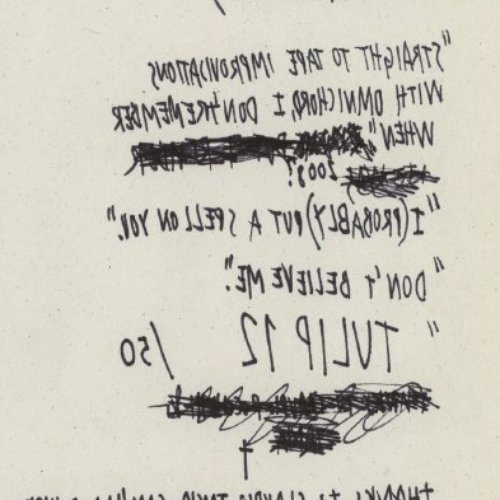 "STRAIGHT TO TAPE IMPROVISATIONS
WITH OMNICHORD, I DON'T REMEMBER
WHEN"
2008?
"I (PROBABLY) PUT A SPELL ON YOU."
"DON'T BELIEVE ME."
"TULIP 12 /50
THANKS TO CLAUDIO